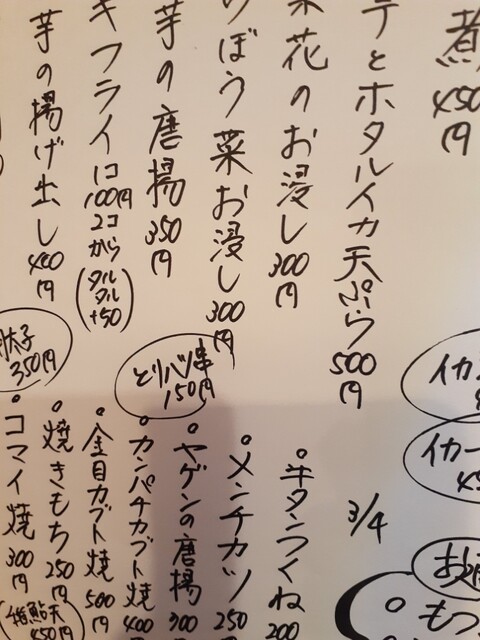 煮
450円
テとホタルイカ天ぷら
500円
花のお浸し
300円
ぼう菜お浸し
300円
芋の唐揚
350円
キフライ1コ
100円
2コから
(タルタル
+50)
芋の揚げ出し
400円
太子
350円
とりハツ串
150円
イカ
イカ
3/4
お通
○もつ
○牛タンつくね
200
○メンチカツ
250
○ヤゲンの唐揚
300
○カンパチカブト焼
400
○金目カブト焼
500円
○焼きもち
250円
○コマイ焼
300円
稚鮎天
450円